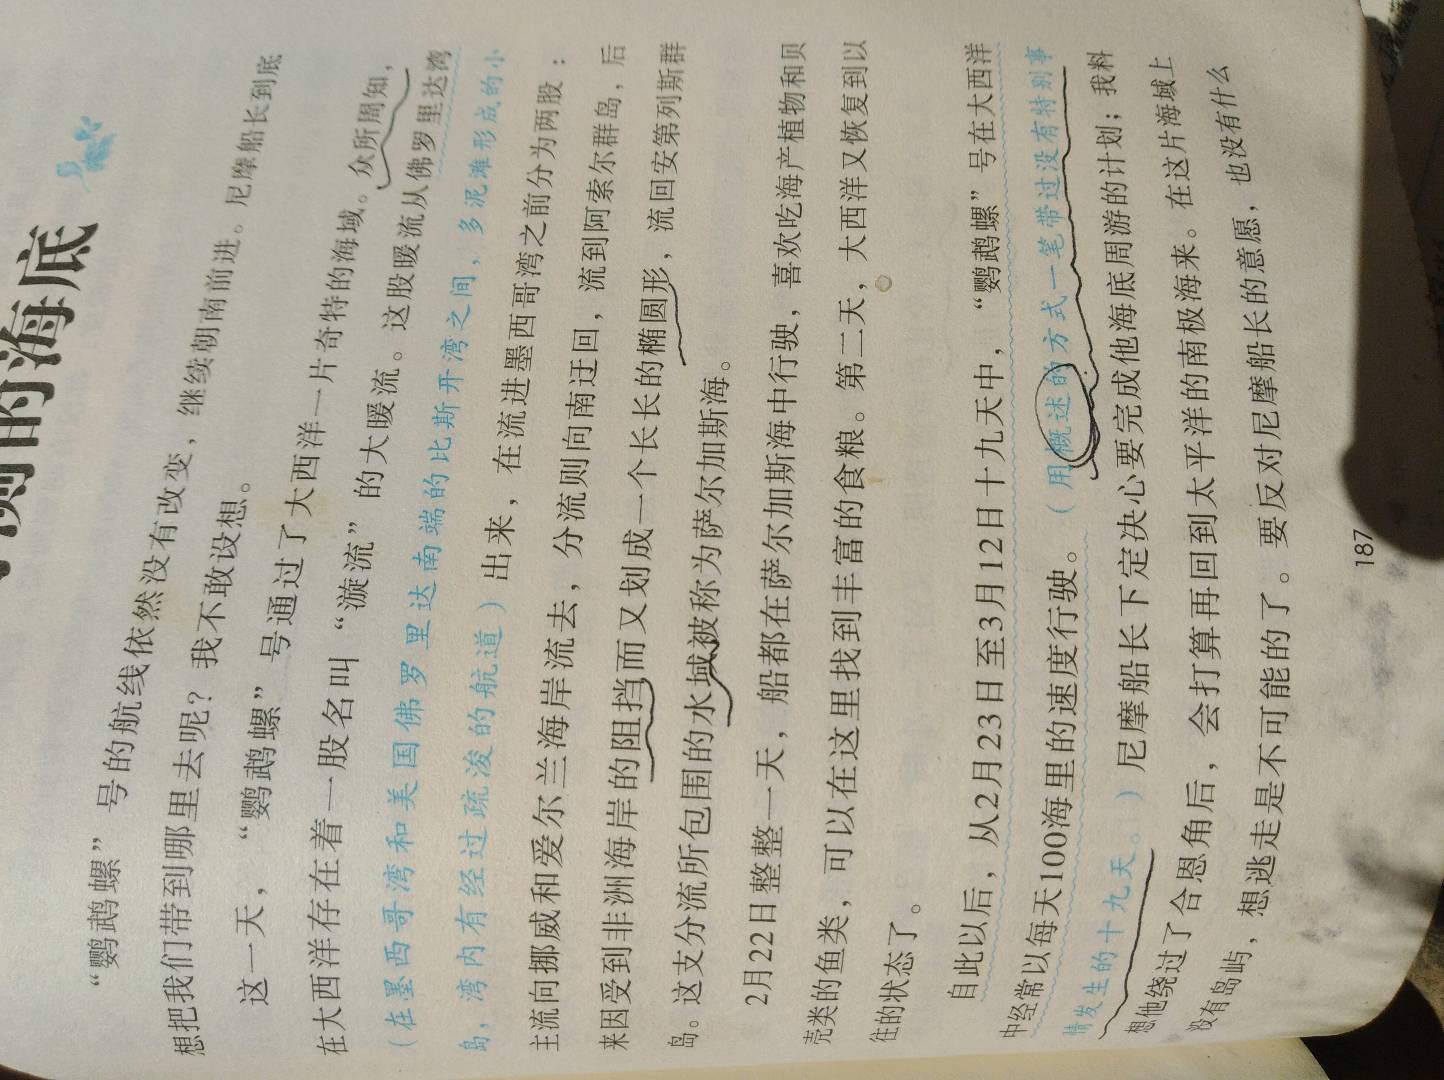 测的海底
“鹦鹉螺”号的航线依然没有改变，继续朝南前进。尼摩船长到底
想把我们带到哪里去呢？我不敢设想。
这一天，“鹦鹉螺”号通过了大西洋一片奇特的海域。众所周知，
在大西洋存在着一股名叫“漩流”的大暖流。这股暖流从佛罗里达湾
（在墨西哥湾和美国佛罗里达南端的比斯开湾之间，多泥滩形成的小
岛，湾内有经过疏浚的航道）出来，在流进墨西哥湾之前分为两股：
主流向挪威和爱尔兰海岸流去，分流则向南迂回，流到阿索尔群岛，后
来因受到非洲海岸的阻挡而又划成一个长长的椭圆形，流回安第列斯群
岛。这支分流所包围的水域被称为萨尔加斯海。
2月22日整整一天，船都在萨尔加斯海中行驶，喜欢吃海产植物和贝
壳类的鱼类，可以在这里找到丰富的食粮。第二天，大西洋又恢复到以
往的状态了。
自此以后，从2月23日至3月12日十九天中，“鹦鹉螺”号在大西洋
中经常以每天100海里的速度行驶。（用概述的方式一笔带过没有特别事
情发生的十九天。）尼摩船长下定决心要完成他海底周游的计划；我料
想他绕过了合恩角后，会打算再回到太平洋的南极海来。在这片海域上
没有岛屿，想逃走是不可能的了。要反对尼摩船长的意愿，也没有什么
187